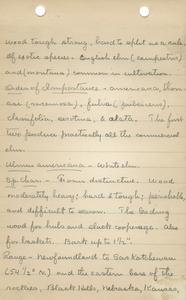 wood tough strong, hard to split as a rule.
Of exotic species - English elm (campestris)
and (montana) common in cultivation.
Order of Importance - americana, thom-
asi (racemosa), fulva (pubescens),
alata. The first
two produce practically all the commercial
elm.
Ulmus americana - White elm.
Sp. char. - Rings distinctive. Wood
moderately heavy; hard & tough; perishable,
and difficult to season. The leading
wood for hubs and slack cooperage. Also
for baskets. Bark up to 1½".
Range - Newfoundland to Saskatchewan
(54½° N.) and the eastern base of the
rockies, Black Hills, Nebraska, Kansas,